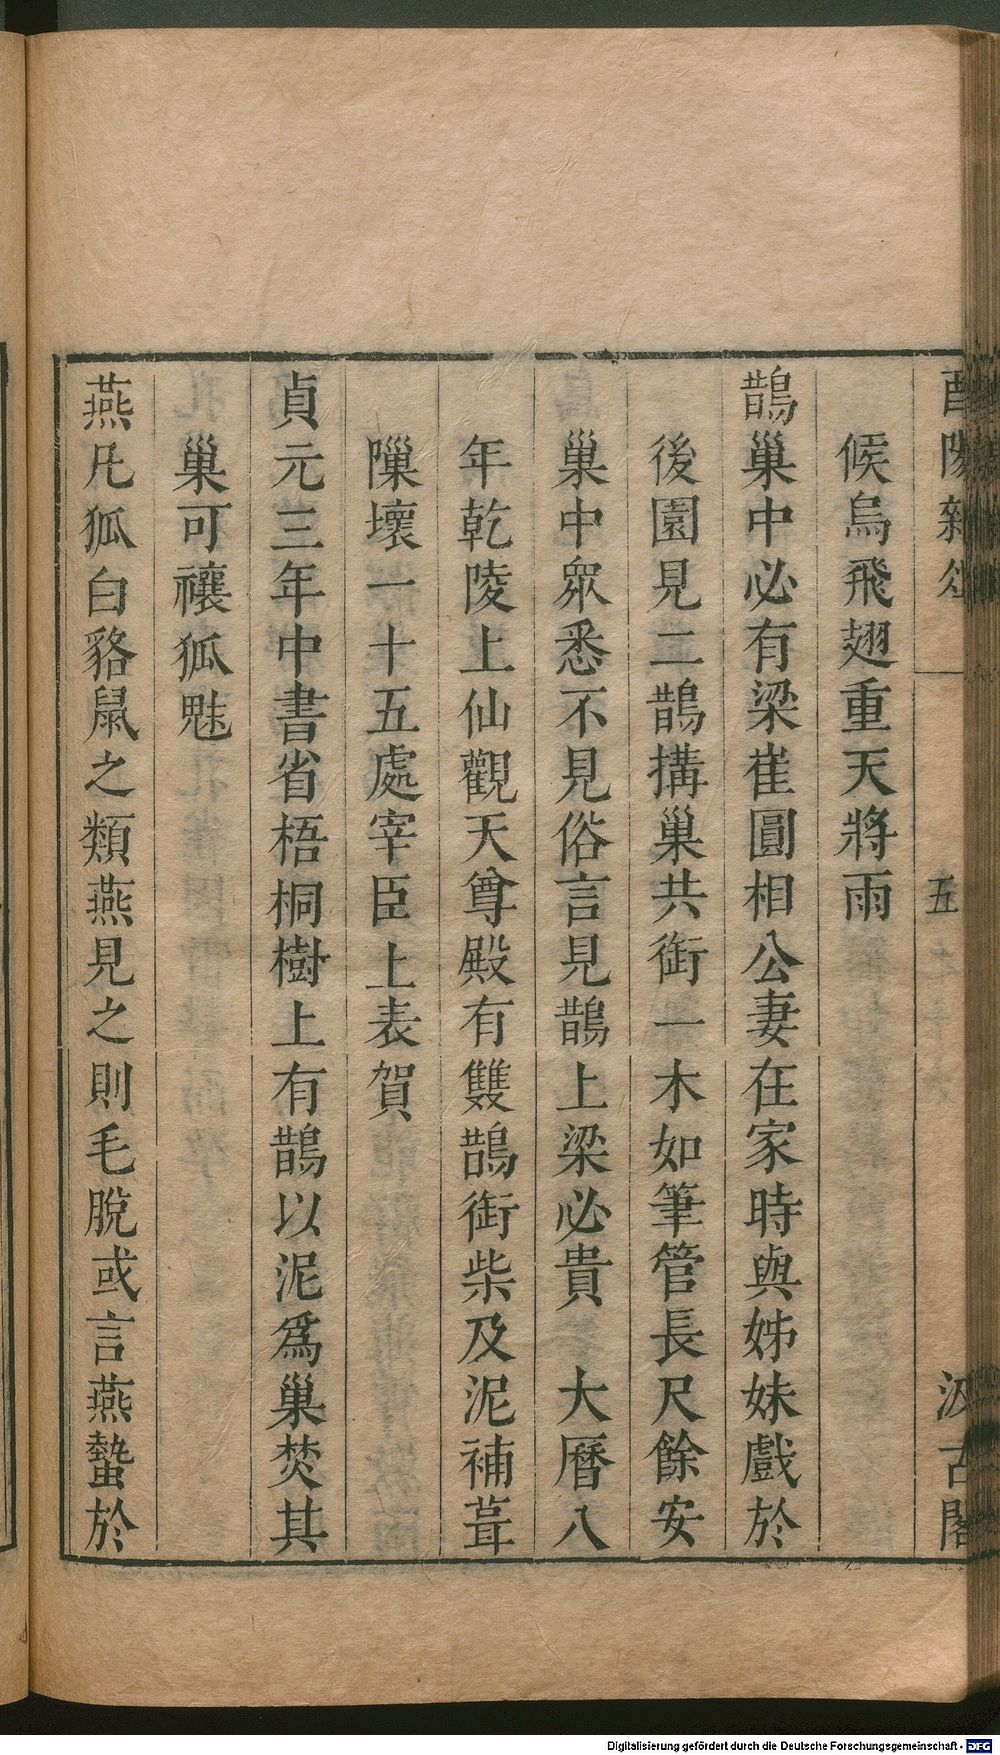 酉陽雜俎
五
汲古閣
候烏飛翅重天將雨
鵲巢中必有梁崔圓相公妻在家時與姊妹戲於
後園見二鵲搆巢共銜一木如筆管長尺餘安
巢中衆悉不見俗言見鵲上梁必貴　大曆八
年乾陵上仙觀天尊殿有雙鵲銜柴及泥補葺
隟壞一十五處宰臣上表賀
貞元三年中書省梧桐樹上有鵲以泥爲巢焚其
巢可禳狐魅
燕凡狐白貉鼠之類燕見之則毛脫或言燕蟄於
Digitalisierung gefördert durch die Deutsche Forschungsgemeinschaft - DFG